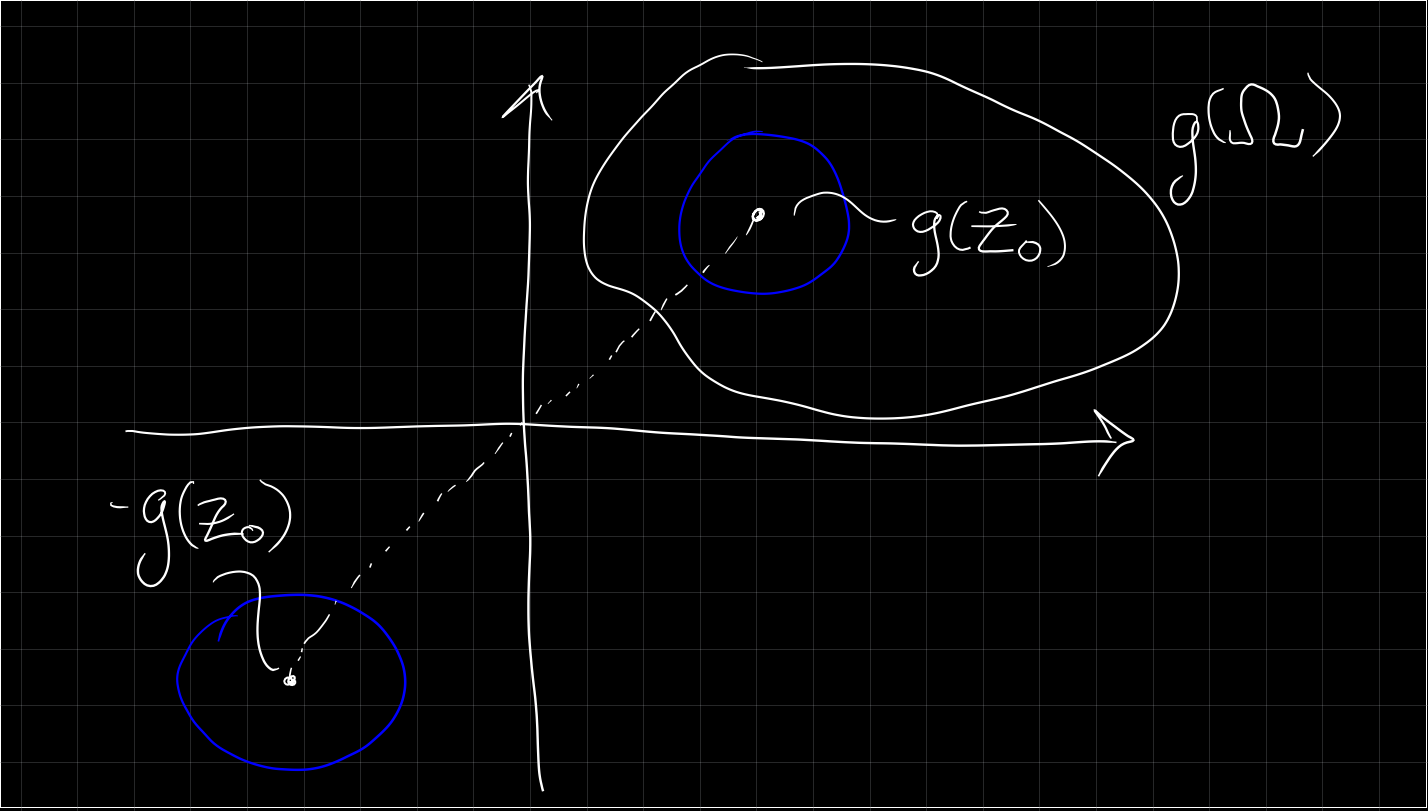 g(Ω)
g(z₀)
-g(z₀)